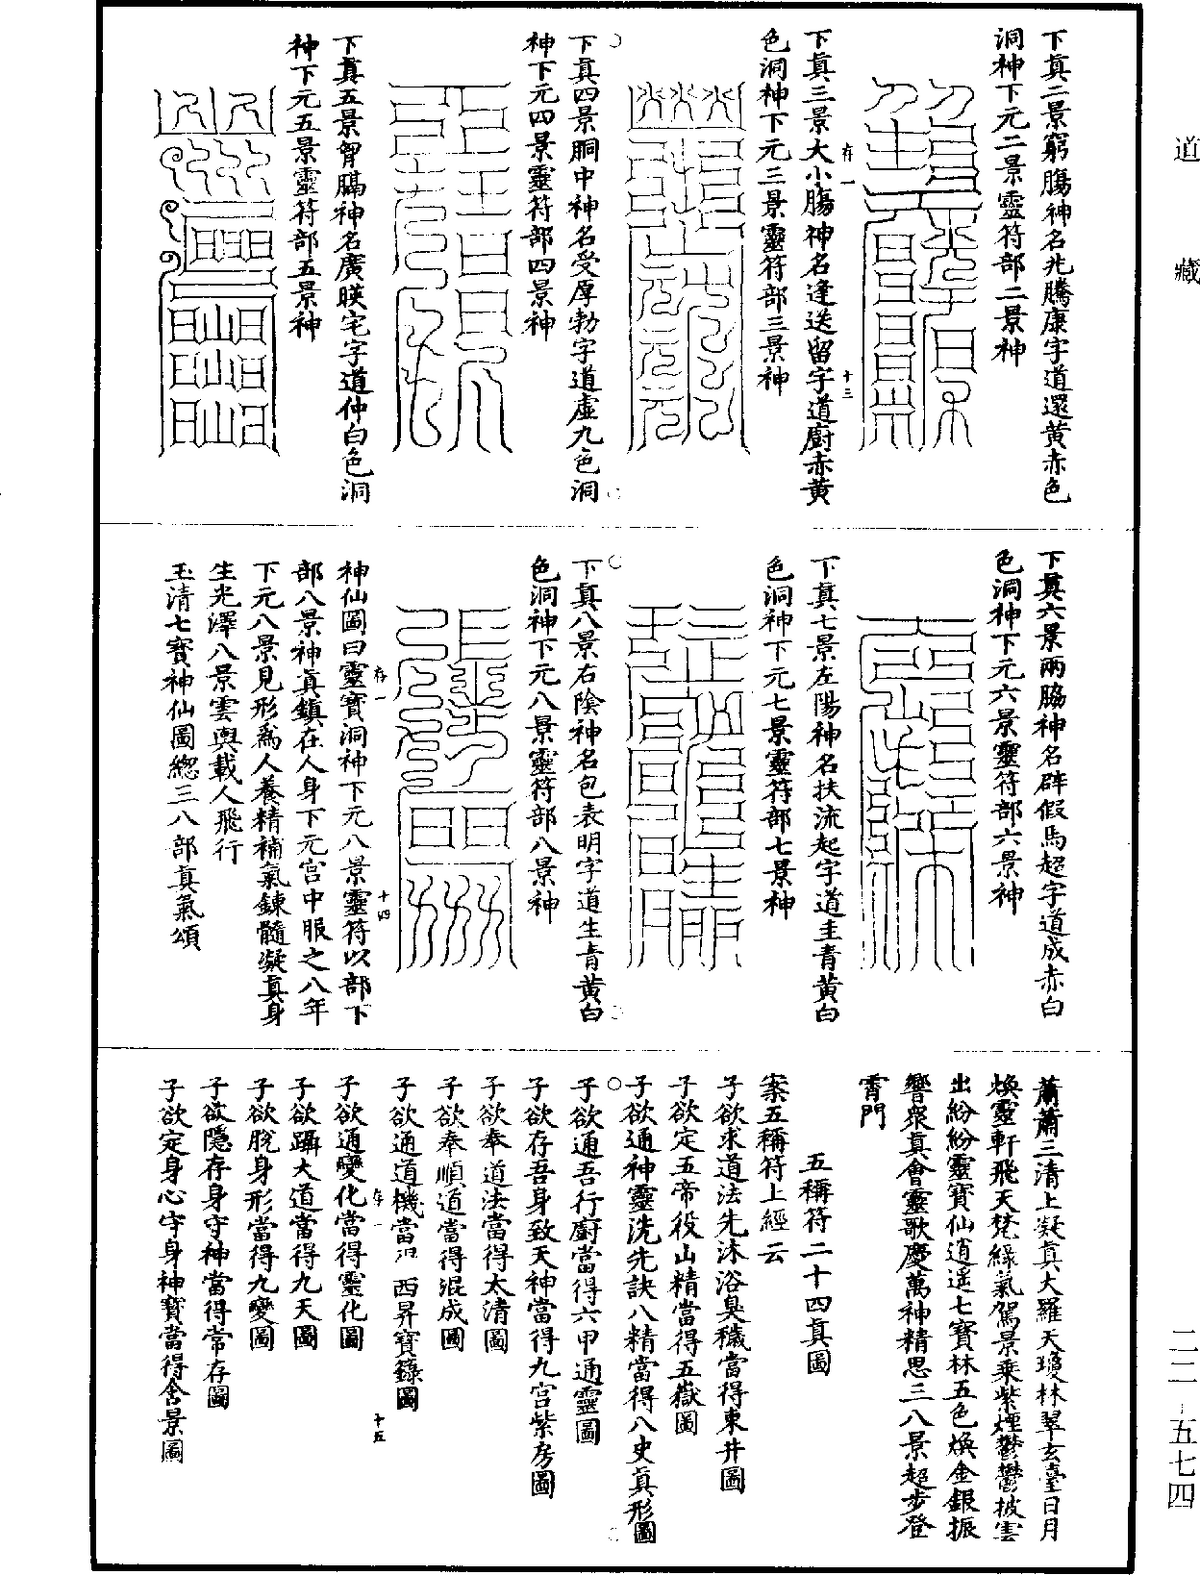 道 藏
下真二景窮腸神名兆騰康字道還黃赤色
洞神下元二景靈符部二景神
下真三景大小腸神名逢送留字道廚赤黃
色洞神下元三景靈符部三景神
下真四景胴中神名受厚勃字道虛九色洞
神下元四景靈符部四景神
下真五景胷膈神名廣暎宅字道仲白色洞
神下元五景靈符部五景神
存一 十三
下真六景兩脇神名辟假馬超字道成赤白
色洞神下元六景靈符部六景神
下真七景左陽神名扶流起字道圭青黃白
色洞神下元七景靈符部七景神
下真八景右陰神名包表明字道生青黃白
色洞神下元八景靈符部八景神
存一 十四
神仙圖曰靈寶洞神下元八景靈符以部下
部八景神真鎮在人身下元宮中服之八年
下元八景見形為人養精補氣鍊髓凝真身
生光澤八景雲輿載人飛行
玉清七寶神仙圖總三八部真氣頌
蕭蕭三清上凝真大羅天瓊林翠玄臺日月
煥靈軒飛天梵綠氣駕景乘紫煙鬱鬱披雲
出紛紛靈寶仙逍遙七寶林五色煥金銀振
響衆真會靈歌慶萬神精思三八景超步登
霄門
五稱符二十四真圖
案五稱符上經云
子欲求道法先沐浴臭穢當得東井圖
子欲定五帝役山精當得五嶽圖
子欲通神靈洗先訣八精當得八史真形圖
子欲通吾行廚當得六甲通靈圖
子欲存吾身致天神當得九宮紫房圖
子欲奉道法當得太清圖
子欲奉順道當得混成圖
子欲通道機當 西昇寶籙圖
存一 十五
子欲通變化當得靈化圖
子欲躡大道當得九天圖
子欲脫身形當得九變圖
子欲隱存身守神當得常存圖
子欲定身心守身神寶當得含景圖
二二-五七四